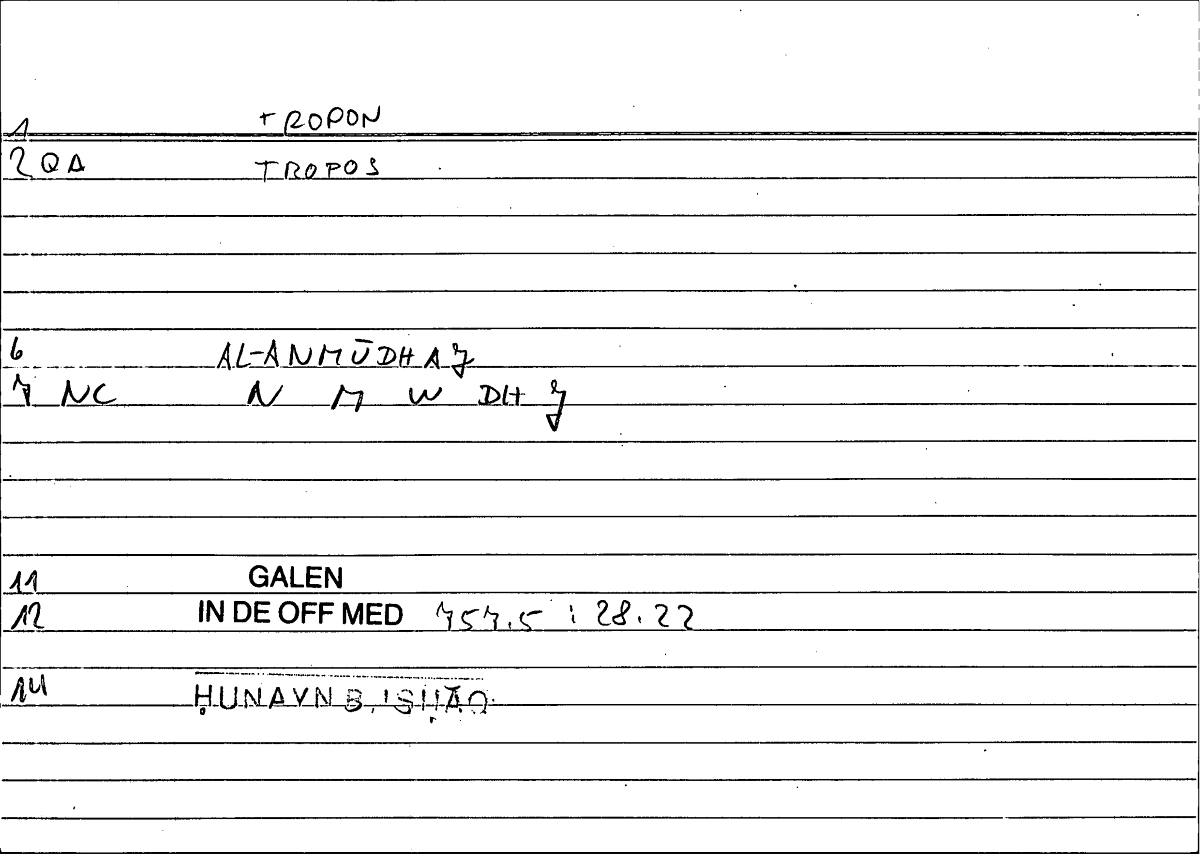 1 TROPON
2 QA TROPOS
6 AL-ANMŪDHAJ
7 NC N M W DH J
11 GALEN
12 IN DE OFF MED 757.5 : 28.22
14 ḤUNAYN B. ISḤĀQ